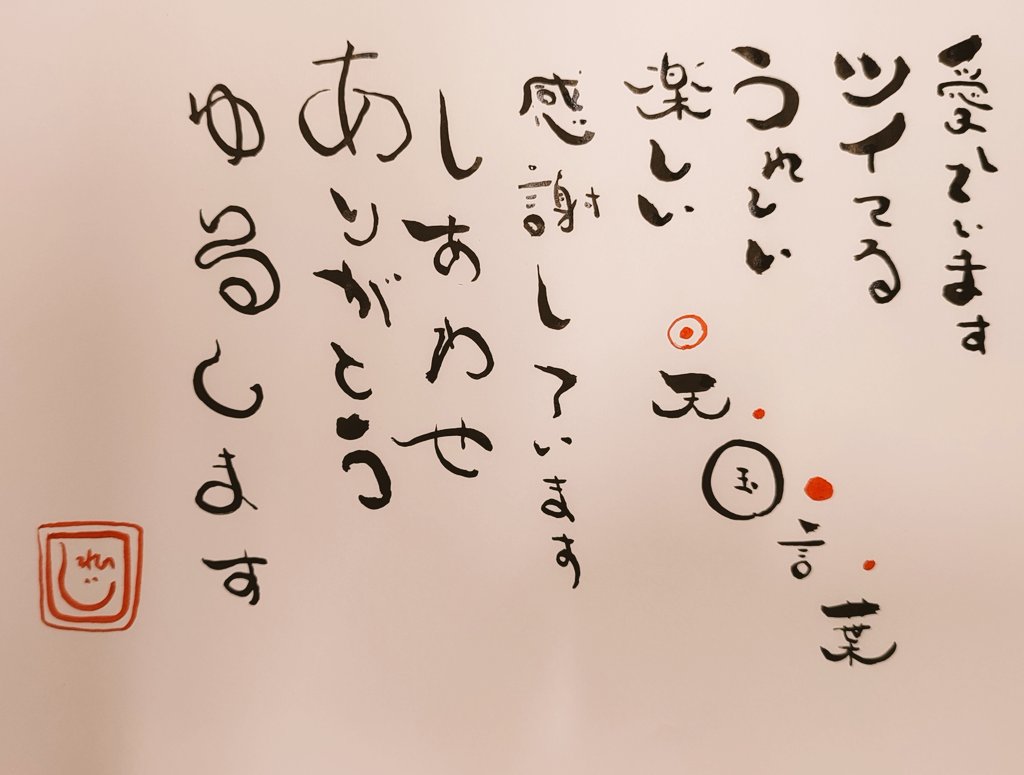 愛しています
ツイてる
うれしい
楽しい
感謝しています
しあわせ
ありがとう
ゆるします
天国言葉